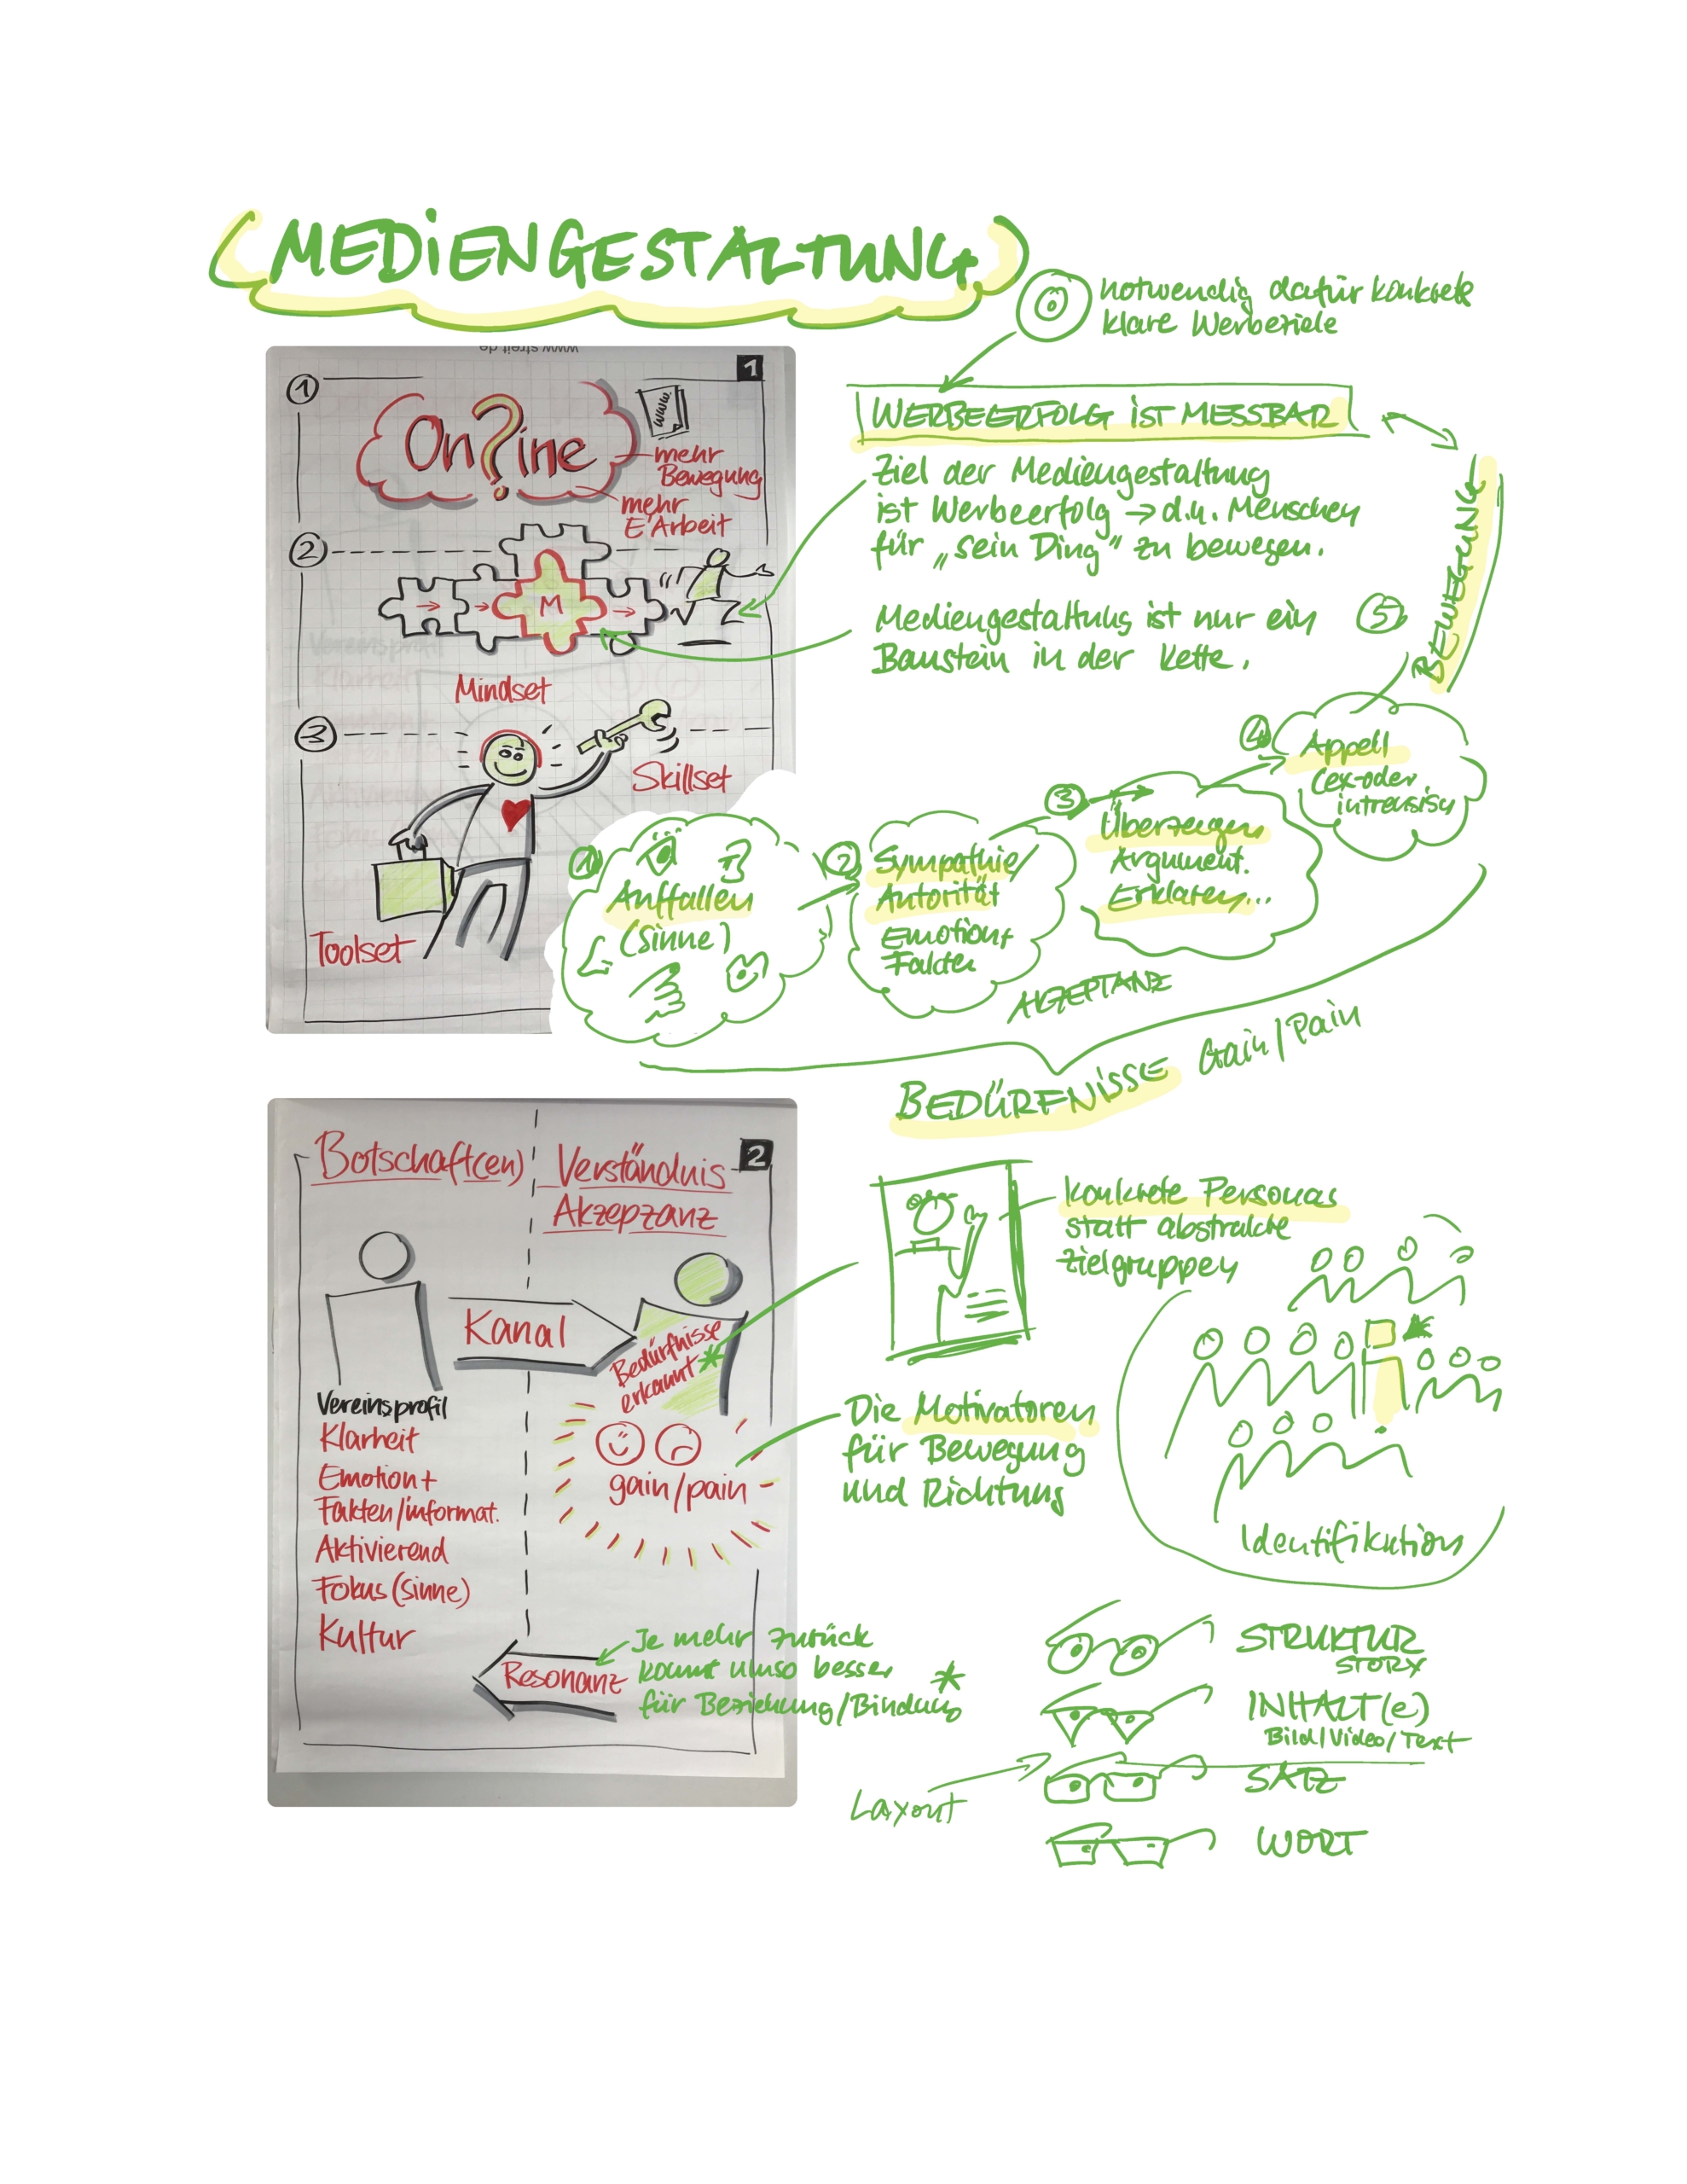 MEDIENGESTALTUNG
0
notwendig dafür konkrete
klare Werbeziele
www.streit.de
1
1
On?ine
www.
mehr
Bewegung
mehr
E'Arbeit
2
M
Mindset
3
Skillset
Toolset
WERBEERFOLG IST MESSBAR
Ziel der Mediengestaltung
ist Werbeerfolg → d.h. Menschen
für „sein Ding" zu bewegen.
Mediengestaltung ist nur ein
Baustein in der Kette.
5
BEWEGUNG
4
Appell
(ex- oder
intrensisch
3
Überzeugen
Argument.
Erklären...
2
Sympathie/
Autorität
Emotion+
Fakten
1
Auffallen
(Sinne)
AKZEPTANZ
BEDÜRFNISSE
Gain/Pain
2
Botschaft(en)
Verständnis
Akzepzanz
Kanal
Bedürfnisse
erkannt *
Vereinsprofil
Klarheit
Emotion+
Fakten/informat.
Aktivierend
Fokus (Sinne)
Kultur
gain/pain
Resonanz
Je mehr zurück
kommt umso besser
für Beziehung/Bindung
*
konkrete Personas
statt abstrakte
Zielgruppen
Die Motivatoren
für Bewegung
und Richtung
Identifikation
STRUKTUR
STORY
INHALT(e)
Bild/Video/Text
Layout
SATZ
WORT